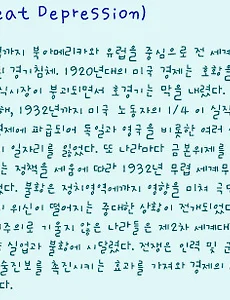 eat Depression)
까지 북아메리카와 유럽을 중심으로 전 세계
경기침체. 1920년대의 미국 경제는 호황을
식시장이 붕괴되면서 호경기는 막을 내렸다.
해, 1932년까지 미국 노동자의 1/4 이 실직
경제에 파급되어 독일과 영국을 비롯한 여러
이 일자리를 잃었다. 또 나라마다 금본위제를
는 정책을 세움에 따라 1932년 무렵 세계무
었다. 불황은 정치영역에까지 영향을 미쳐 극
의 위신이 떨어지는 중대한 상황이 전개되었다.
주의로 기울지 않은 나라들은 제2차 세계대
실업과 불황에 시달렸다. 전쟁은 인력 및 군
술진보를 촉진시키는 효과를 가져와 경제의
다.